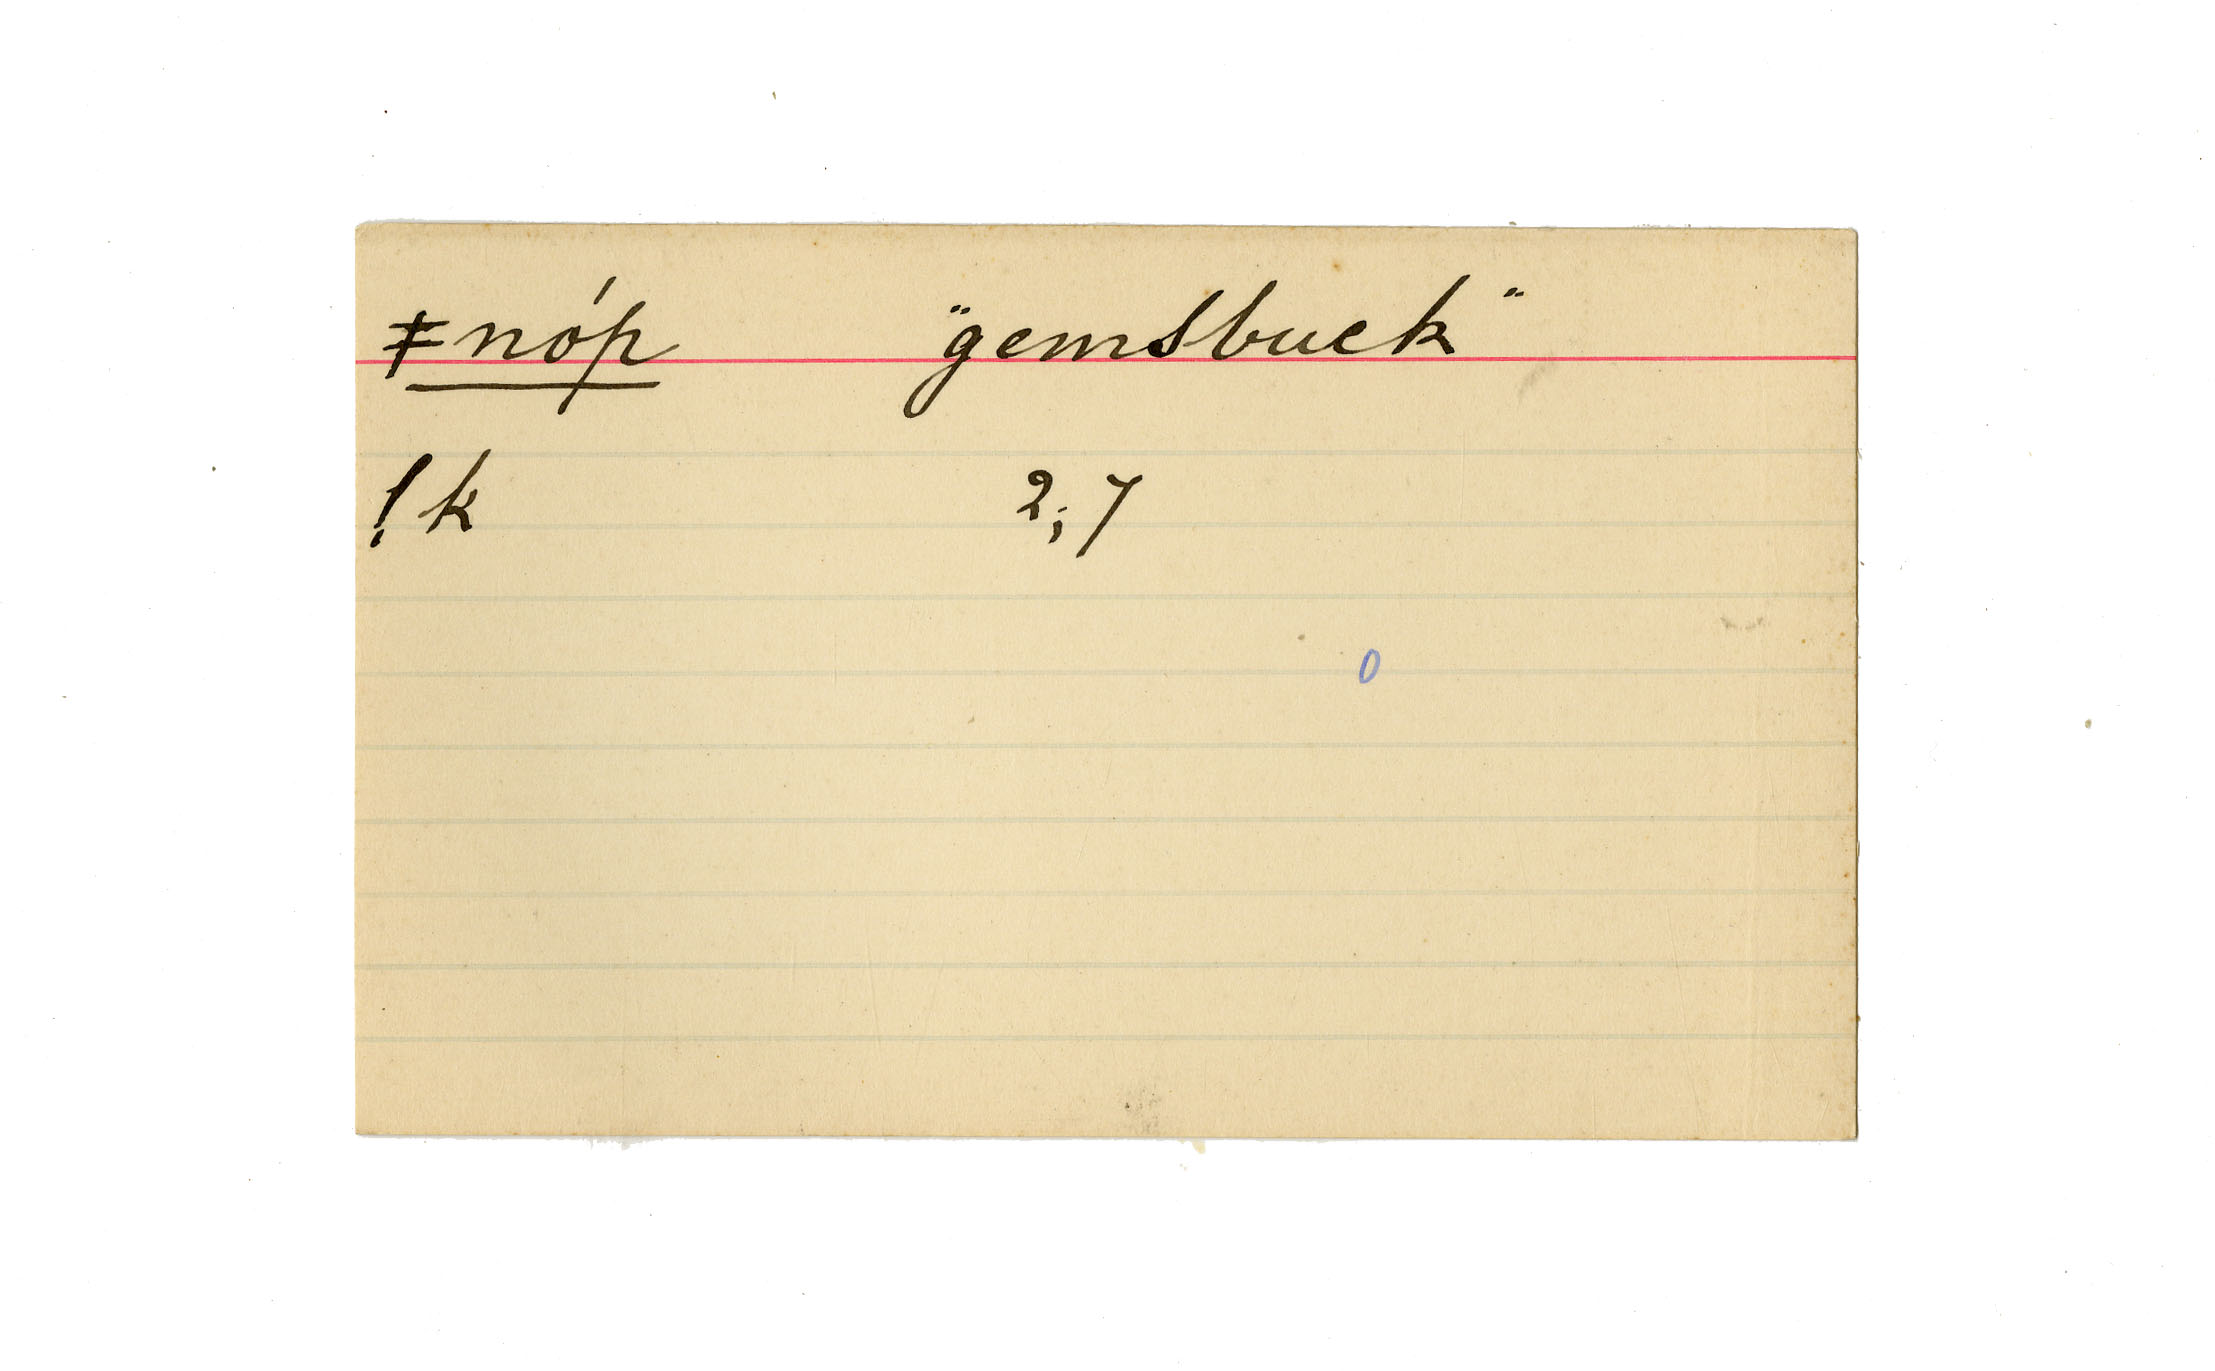 ǂnóp "gemsbuck"
!k 2;7
0